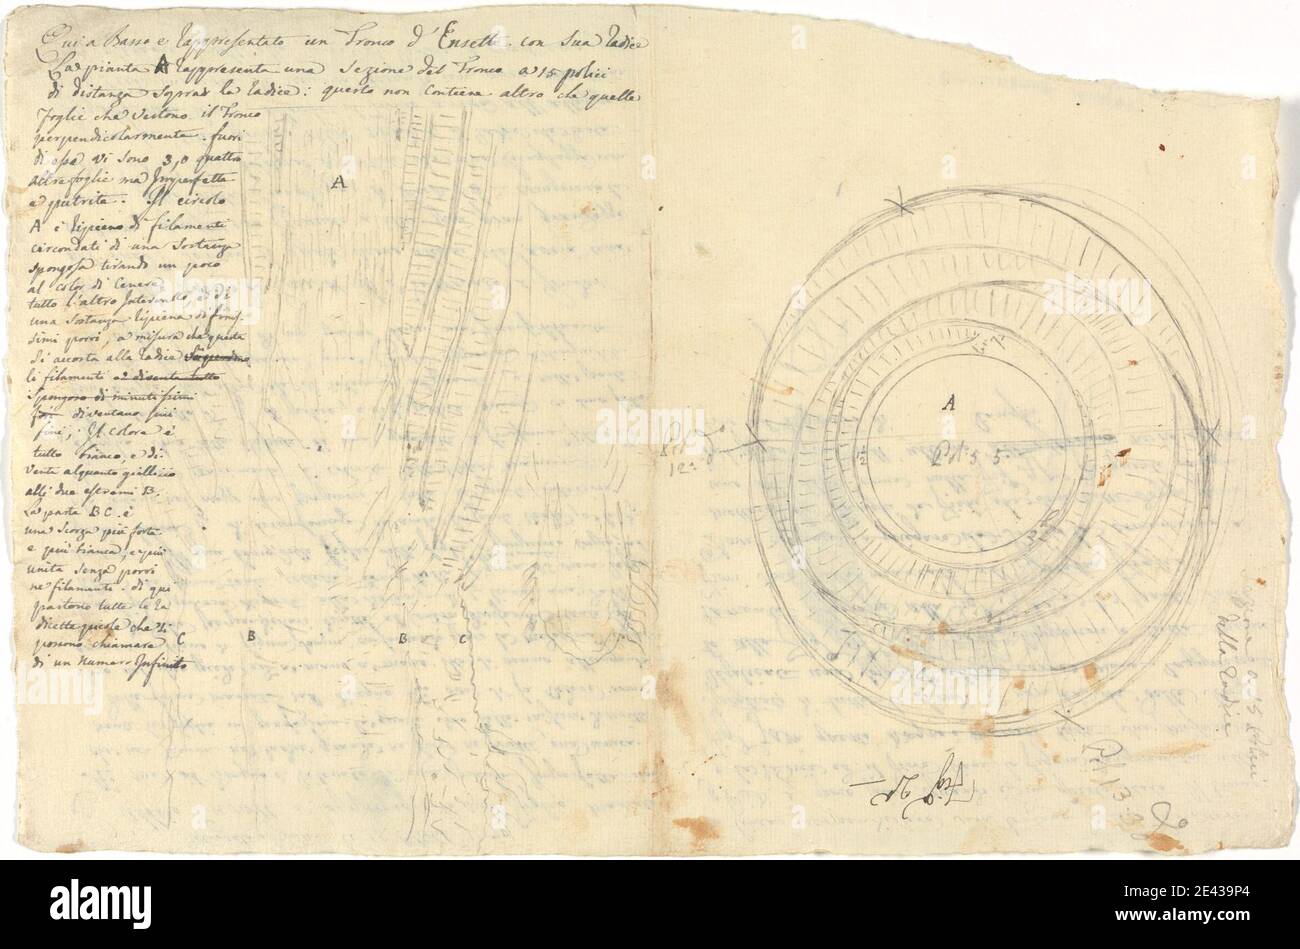 Qui a Basso e rappresentato un Tronco d'Ensette con sua radice
La pianta A rappresenta una Sezione del Tronco a 15 polici
di distanza sopra la radice: questo non contiene altro che quelle
foglie che vestono il Tronco
perpendicolarmente. fuori
di essa vi sono 3, o quattro
altre foglie ma Imperfette
e putrite. Il circolo
A è ripieno di filamenti
circondati di una Sostanza
spongosa tirando un poco
al color di Cenere
tutto l'altro Intervallo è di
una Sostanza ripiena di finis-
simi porri, a misura che questa
Si accosta alla radice
li filamenti e diventa tutto
Spongoso di minutissimi
fori diventano fini
fini, Il colore è
tutto bianco, e di
venta alquanto gialliccio
alli due estremi B.
La parte B C. è
una Scorza più forte
e più bianca, e più
unita Senza porri
ne filamenti. di qui
partono tutte le ra
dicette picole che Si
possono chiamare
di un Numero Infinito
A
C B B C
A
Pol. 5 5
12
Fig. 2
Pol 13
Sezione a 15 Polici
della radice
alamy
a
alamy
Image ID: 2E439P4
www.alamy.com